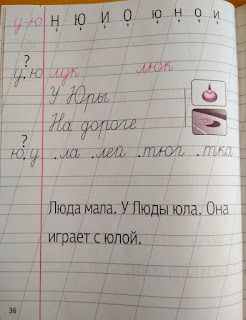 у-ю Н Ю И О ю н о и
?
у, ю лук люк
У Юры
На дороге
?
ю, у .ла .лей .тюг .тка
Люда мала. У Люды юла. Она
играет с юлой.
36